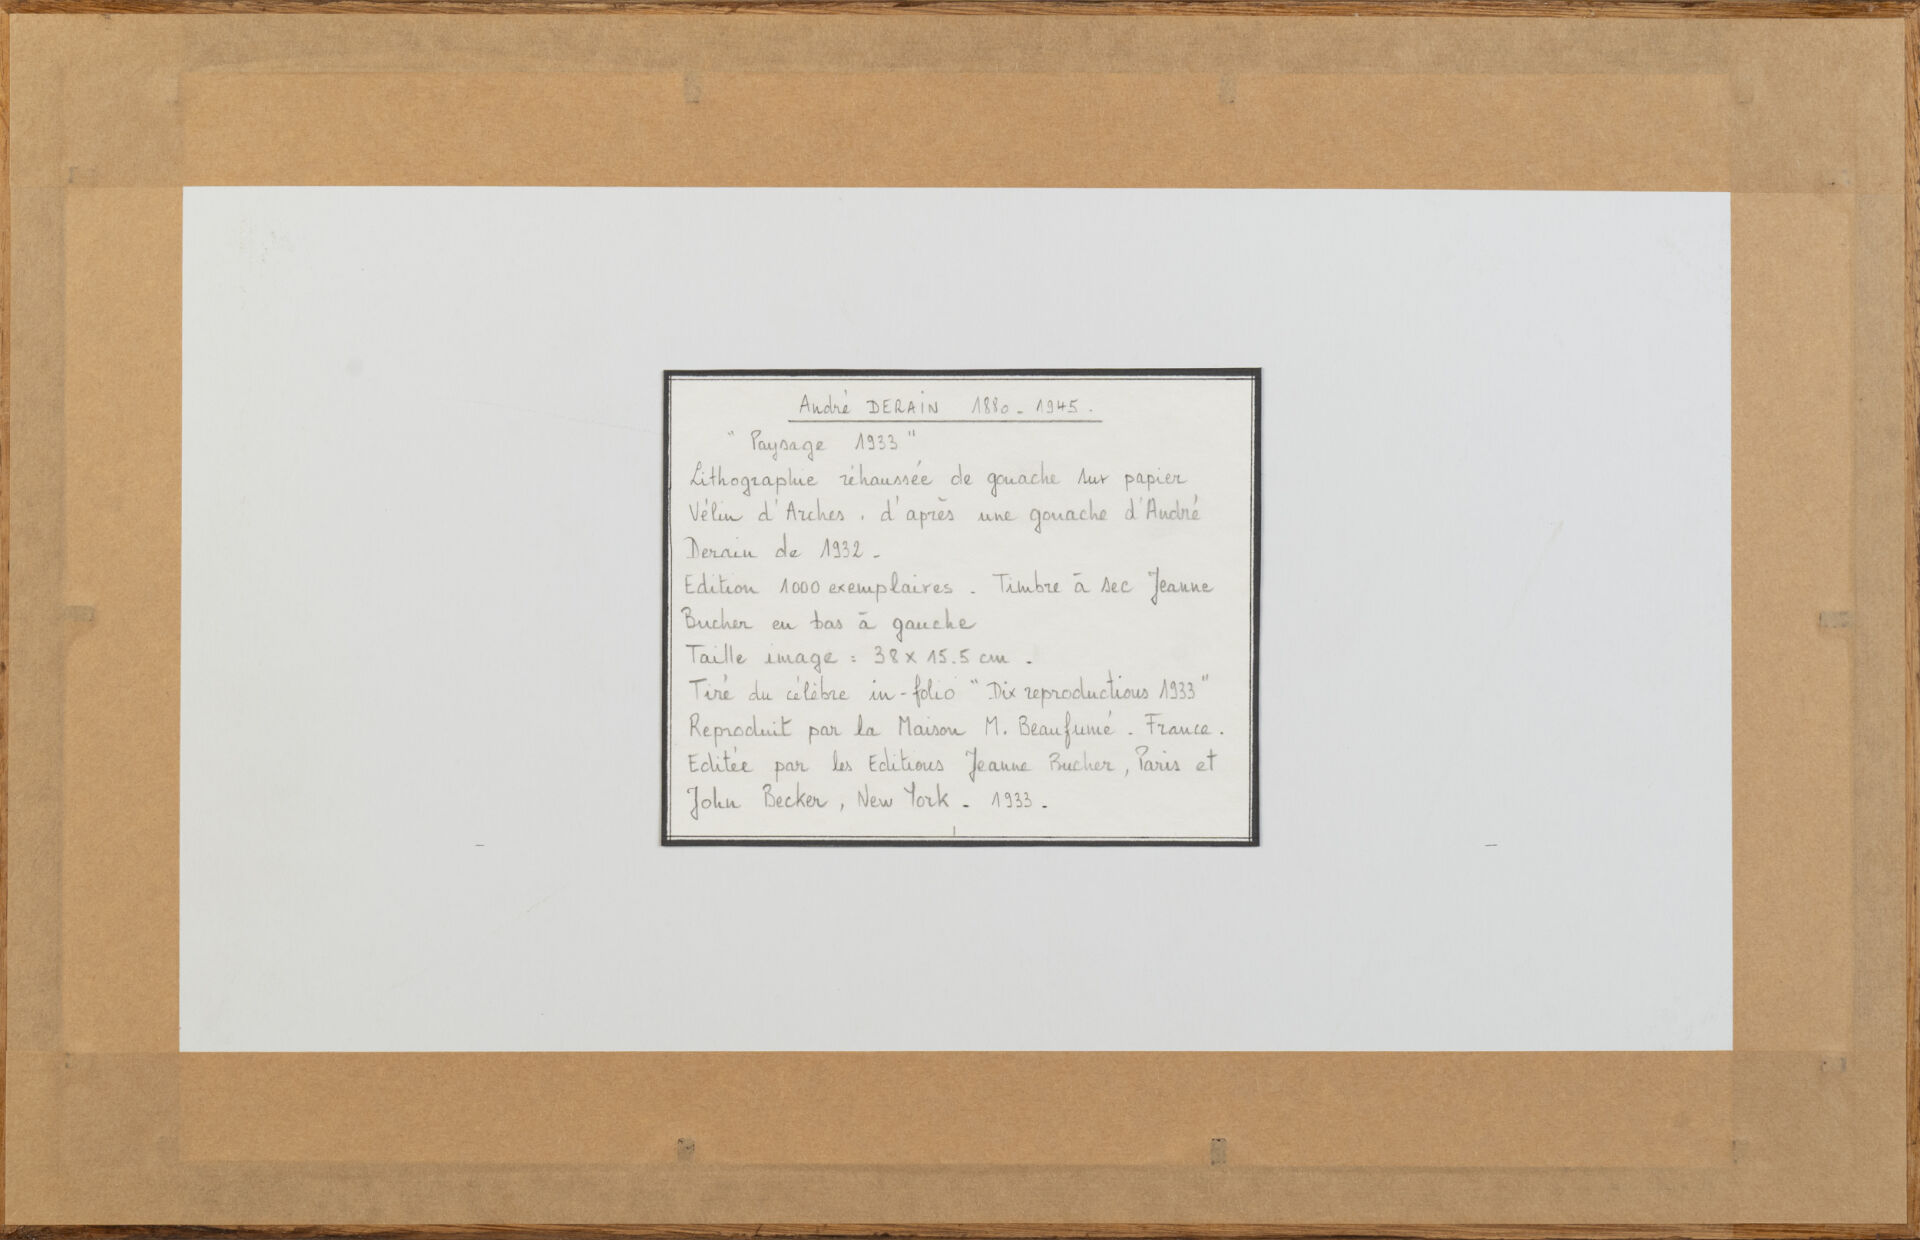 André DERAIN 1880 - 1945.
" Paysage 1933 "
Lithographie réhaussée de gouache sur papier
Vélin d'Arches. d'après une gouache d'André
Derain de 1932 -
Edition 1000 exemplaires - Timbre à sec Jeanne
Bucher en bas à gauche
Taille image : 38 x 15.5 cm .
Tiré du célèbre in-folio " Dix reproductions 1933 "
Reproduit par la Maison M. Beaufumé - France .
Editée par les Editions Jeanne Bucher, Paris et
John Becker, New York - 1933 -